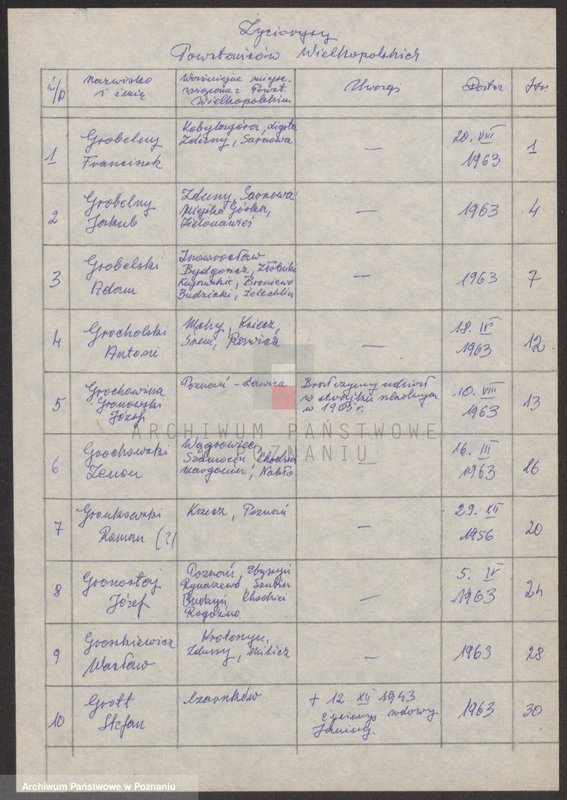 Życiorysy
Powstańców Wielkopolskich
L/p
Nazwisko
i imię
Ważniejsze miejsc.
związane z Powst.
Wielkopolskim
Uwagi
Data
Str.
1
Grobelny
Franciszek
Kobylagóra, Ligota
Zduny, Sarnowa
—
20. VIII
1963
1
2
Grobelny
Jakub
Zduny, Sarnowa
Miejska Górka,
Zielonawieś
—
1963
4
3
Grobelski
Adam
Inowrocław
Bydgoszcz, Złotniki
Kujawskie, Broniewo
Budziaki, Żelechlin
—
1963
7
4
Grocholski
Antoni
Mchy, Książ,
Śrem, Rawicz
—
18. IV
1963
12
5
Grochowina
Gronowski
Józef
Poznań - Ławica
Brał czynny udział
w strajku szkolnym
w 1905 r.
10. VIII
1963
13
6
Grochowski
Zenon
Wągrowiec,
Szamocin, Chodzież
Margonin, Nakło
—
16. III
1963
16
7
Gronkowski
Roman (?)
Książ, Poznań
—
29. XII
1956
20
8
Gronostaj
Józef
Poznań, Zbąszyń
Rynarzewo Szubin
Budzyń, Chodzież
Rogoźno
—
5. IV
1963
24
9
Groszkiewicz
Wacław
Krotoszyn,
Zduny, Milicz
—
1963
28
10
Grott
Stefan
Czarnków
+ 12. XII 1943
Życiorys wdowy
Janiny.
1963
30
ARCHIWUM PAŃSTWOWE
W POZNANIU
Archiwum Państwowe w Poznaniu